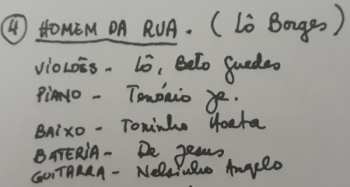 ④ HOMEM DA RUA. (Lô Borges)
VIOLÕES - Lô, Beto Guedes
PIANO - Tenório Jr.
BAIXO - Toninho Horta
BATERIA - De Jesus
GUITARRA - Nelsinho Angelo